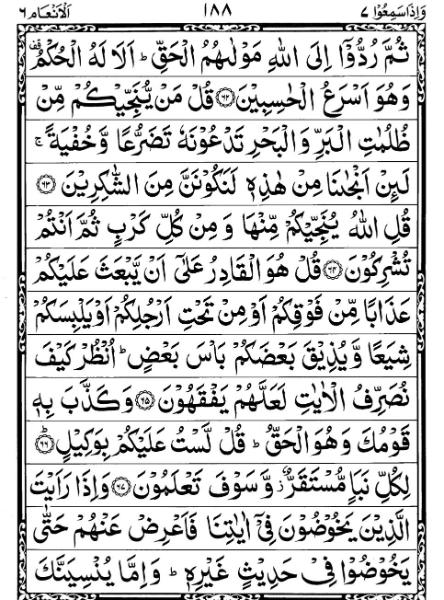 وَاِذَاسَمِعُوْا ٧ ١٨٨ اَلْاَنْعَام ٦
ثُمَّ رُدُّوْٓا اِلَى اللّٰهِ مَوْلٰىهُمُ الْحَقِّ ؕ اَلَا لَهُ الْحُكْمُ ۫
وَهُوَ اَسْرَعُ الْحٰسِبِيْنَ ﴿٦٢﴾ قُلْ مَنْ يُّنَجِّيْكُمْ مِّنْ
ظُلُمٰتِ الْبَرِّ وَالْبَحْرِ تَدْعُوْنَهٗ تَضَرُّعًا وَّخُفْيَةً ۚ
لَىِٕنْ اَنْجٰىنَا مِنْ هٰذِهٖ لَنَكُوْنَنَّ مِنَ الشّٰكِرِيْنَ ﴿٦٣﴾
قُلِ اللّٰهُ يُنَجِّيْكُمْ مِّنْهَا وَمِنْ كُلِّ كَرْبٍ ثُمَّ اَنْتُمْ
تُشْرِكُوْنَ ﴿٦٤﴾ قُلْ هُوَ الْقَادِرُ عَلٰٓى اَنْ يَّبْعَثَ عَلَيْكُمْ
عَذَابًا مِّنْ فَوْقِكُمْ اَوْ مِنْ تَحْتِ اَرْجُلِكُمْ اَوْ يَلْبِسَكُمْ
شِيَعًا وَّيُذِيْقَ بَعْضَكُمْ بَاْسَ بَعْضٍ ؕ اُنْظُرْ كَيْفَ
نُصَرِّفُ الْاٰيٰتِ لَعَلَّهُمْ يَفْقَهُوْنَ ﴿٦٥﴾ وَكَذَّبَ بِهٖ
قَوْمُكَ وَهُوَ الْحَقُّ ؕ قُلْ لَّسْتُ عَلَيْكُمْ بِوَكِيْلٍ ﴿٦٦﴾ؕ
لِكُلِّ نَبَاٍ مُّسْتَقَرٌّ ؗ وَّسَوْفَ تَعْلَمُوْنَ ﴿٦٧﴾ وَاِذَا رَاَيْتَ
الَّذِيْنَ يَخُوْضُوْنَ فِيْٓ اٰيٰتِنَا فَاَعْرِضْ عَنْهُمْ حَتّٰى
يَخُوْضُوْا فِيْ حَدِيْثٍ غَيْرِهٖ ؕ وَاِمَّا يُنْسِيَنَّكَ